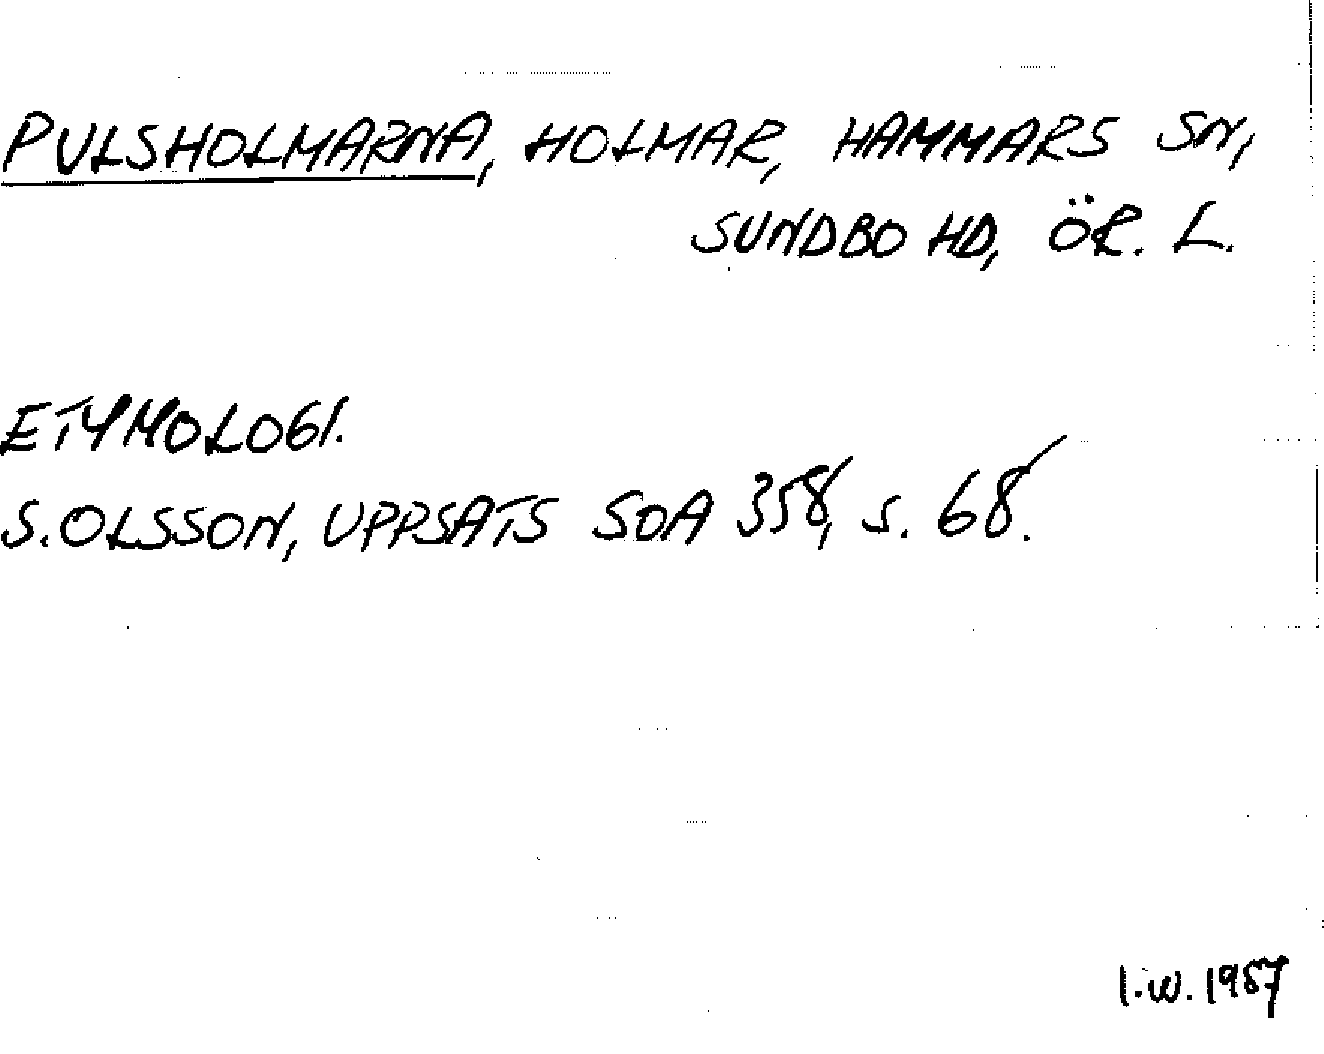 PULSHOLMARNA, HOLMAR, HAMMARS SN,
SUNDBO HD, ÖR. L.
ETYMOLOGI.
S. OLSSON, UPPSATS SOA 358, S. 68.
I.W. 1987